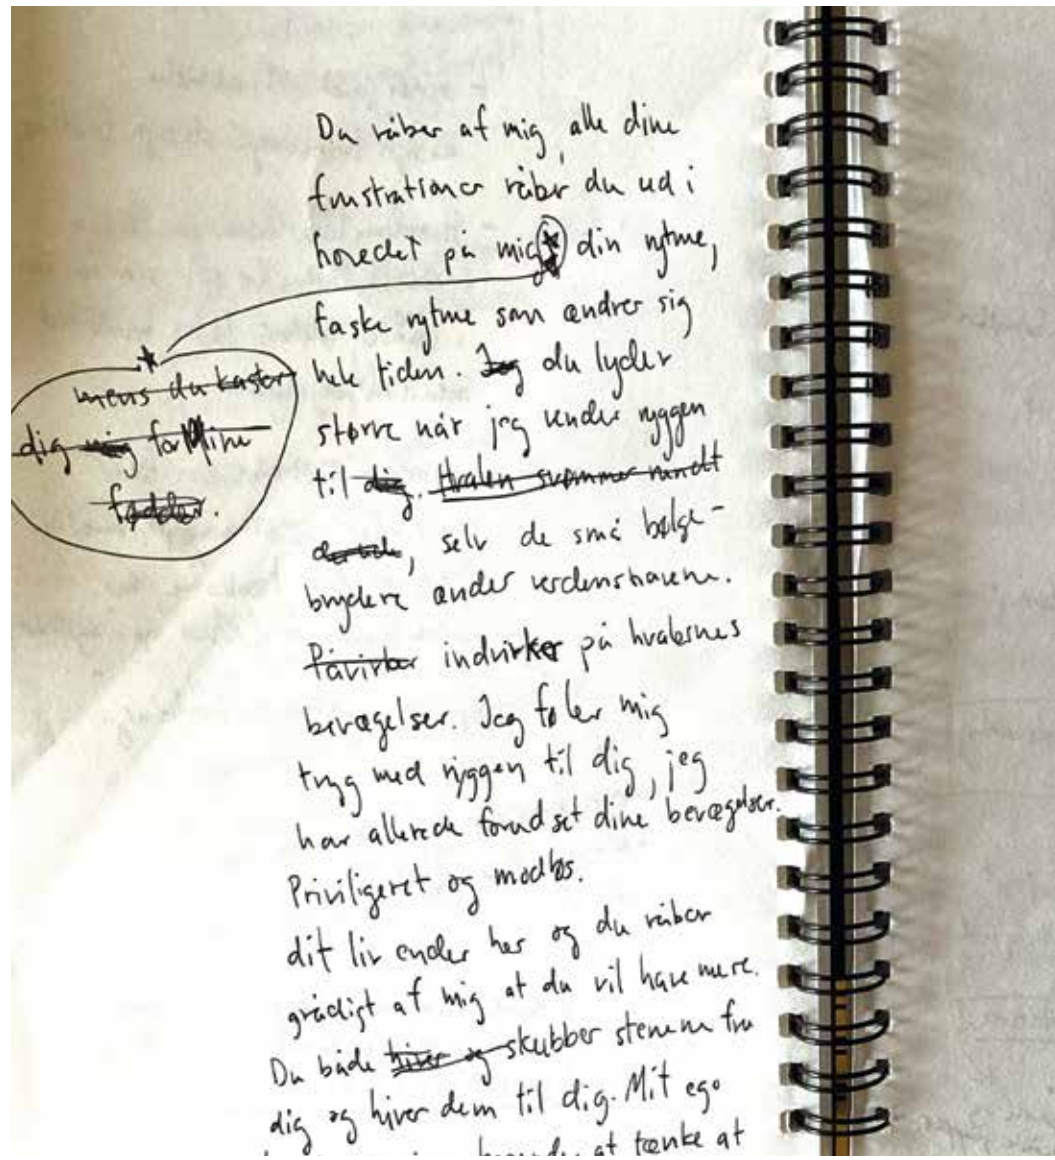 Du råber af mig, alle dine
frustrationer råber du ud i
hovedet på mig * din rytme,
faske rytme som ændrer sig
hele tiden. Jeg du lyder
større når jeg vender ryggen
til dig. Hvalen svømmer rundt
derude, selv de små bølge-
brydere ænder verdenshavene.
Påvirker indvirker på hvalernes
bevægelser. Jeg føler mig
tryg med ryggen til dig, jeg
har allerede forudset dine bevægelser.
Priviligeret og modløs.
dit liv ender her og du råber
grådigt af mig at du vil have mere.
Du både hiver og skubber stenene fra
dig og hiver dem til dig. Mit ego
at tænke at
*
mens du kaster
dig mig for mine
fødder.